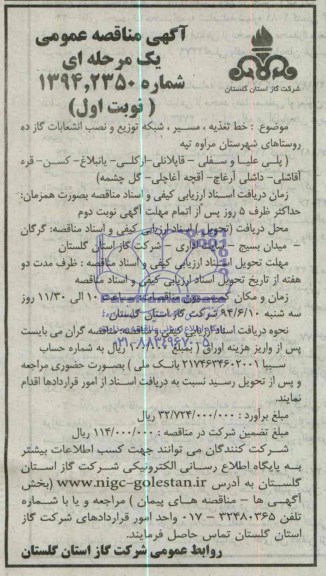 آگهی مناقصه عمومی
یک مرحله ای
شماره ۱۳۹۴,۲۳۵۰
( نوبت اول)
شرکت گاز استان گلستان
موضوع : خط تغذیه ، مسیر ، شبکه توزیع و نصب انشعابات گاز ده
روستاهای شهرستان مراوه تپه
( پلی علیا و سفلی - قاپلانلی-ارکلی- یانبلاغ- کسن- قره
آقاشلی- داشلی آرغاچ- آقچه آغاچلی- گل چشمه)
زمان دریافت اسناد ارزیابی کیفی و اسناد مناقصه بصورت همزمان:
حداکثر ظرف ۵ روز پس از اتمام مهلت آگهی نوبت دوم
محل دریافت (تحویل ) اسناد ارزیابی کیفی و اسناد مناقصه: گرگان
- میدان بسیج - سایت اداری - شرکت گاز استان گلستان
مهلت تحویل اسناد ارزیابی کیفی و اسناد مناقصه : ظرف مدت دو
هفته از تاریخ تحویل اسناد ارزیابی کیفی و اسناد مناقصه
زمان و مکان مناقصات ساعت ۱۰ الی ۱۱/۳۰ روز
سه شنبه ۹۴/۶/۱۰ شرکت گاز استان گلستان
نحوه دریافت اسناد ارزیابی کیفی و مناقصه: مناقصه گران می بایست
پس از واریز هزینه اوراق ( بمبلغ ریال به شماره حساب
سیبا ۲۱۷۴۶۳۴۶۰۲۰۰۱ بانک ملی ) بصورت حضوری مراجعه
و پس از تحویل رسید نسبت به دریافت اسناد از امور قراردادها اقدام
نمایند.
مبلغ برآورد : ۳۲/۷۲۴/۰۰۰/۰۰۰ ریال
مبلغ تضمین شرکت در مناقصه : ۱۱۴/۰۰۰/۰۰۰ ریال
شرکت کنندگان می توانند جهت کسب اطلاعات بیشتر
به پایگاه اطلاع رسانی الکترونیکی شرکت گاز استان
گلستان به آدرس www.nigc-golestan.ir (بخش
آگهی ها - مناقصه های پیمان ) مراجعه و یا با شماره
تلفن ۳۲۴۸۰۳۶۵ - ۰۱۷ واحد امور قراردادهای شرکت گاز
استان گلستان تماس حاصل فرمایند.
روابط عمومی شرکت گاز استان گلستان